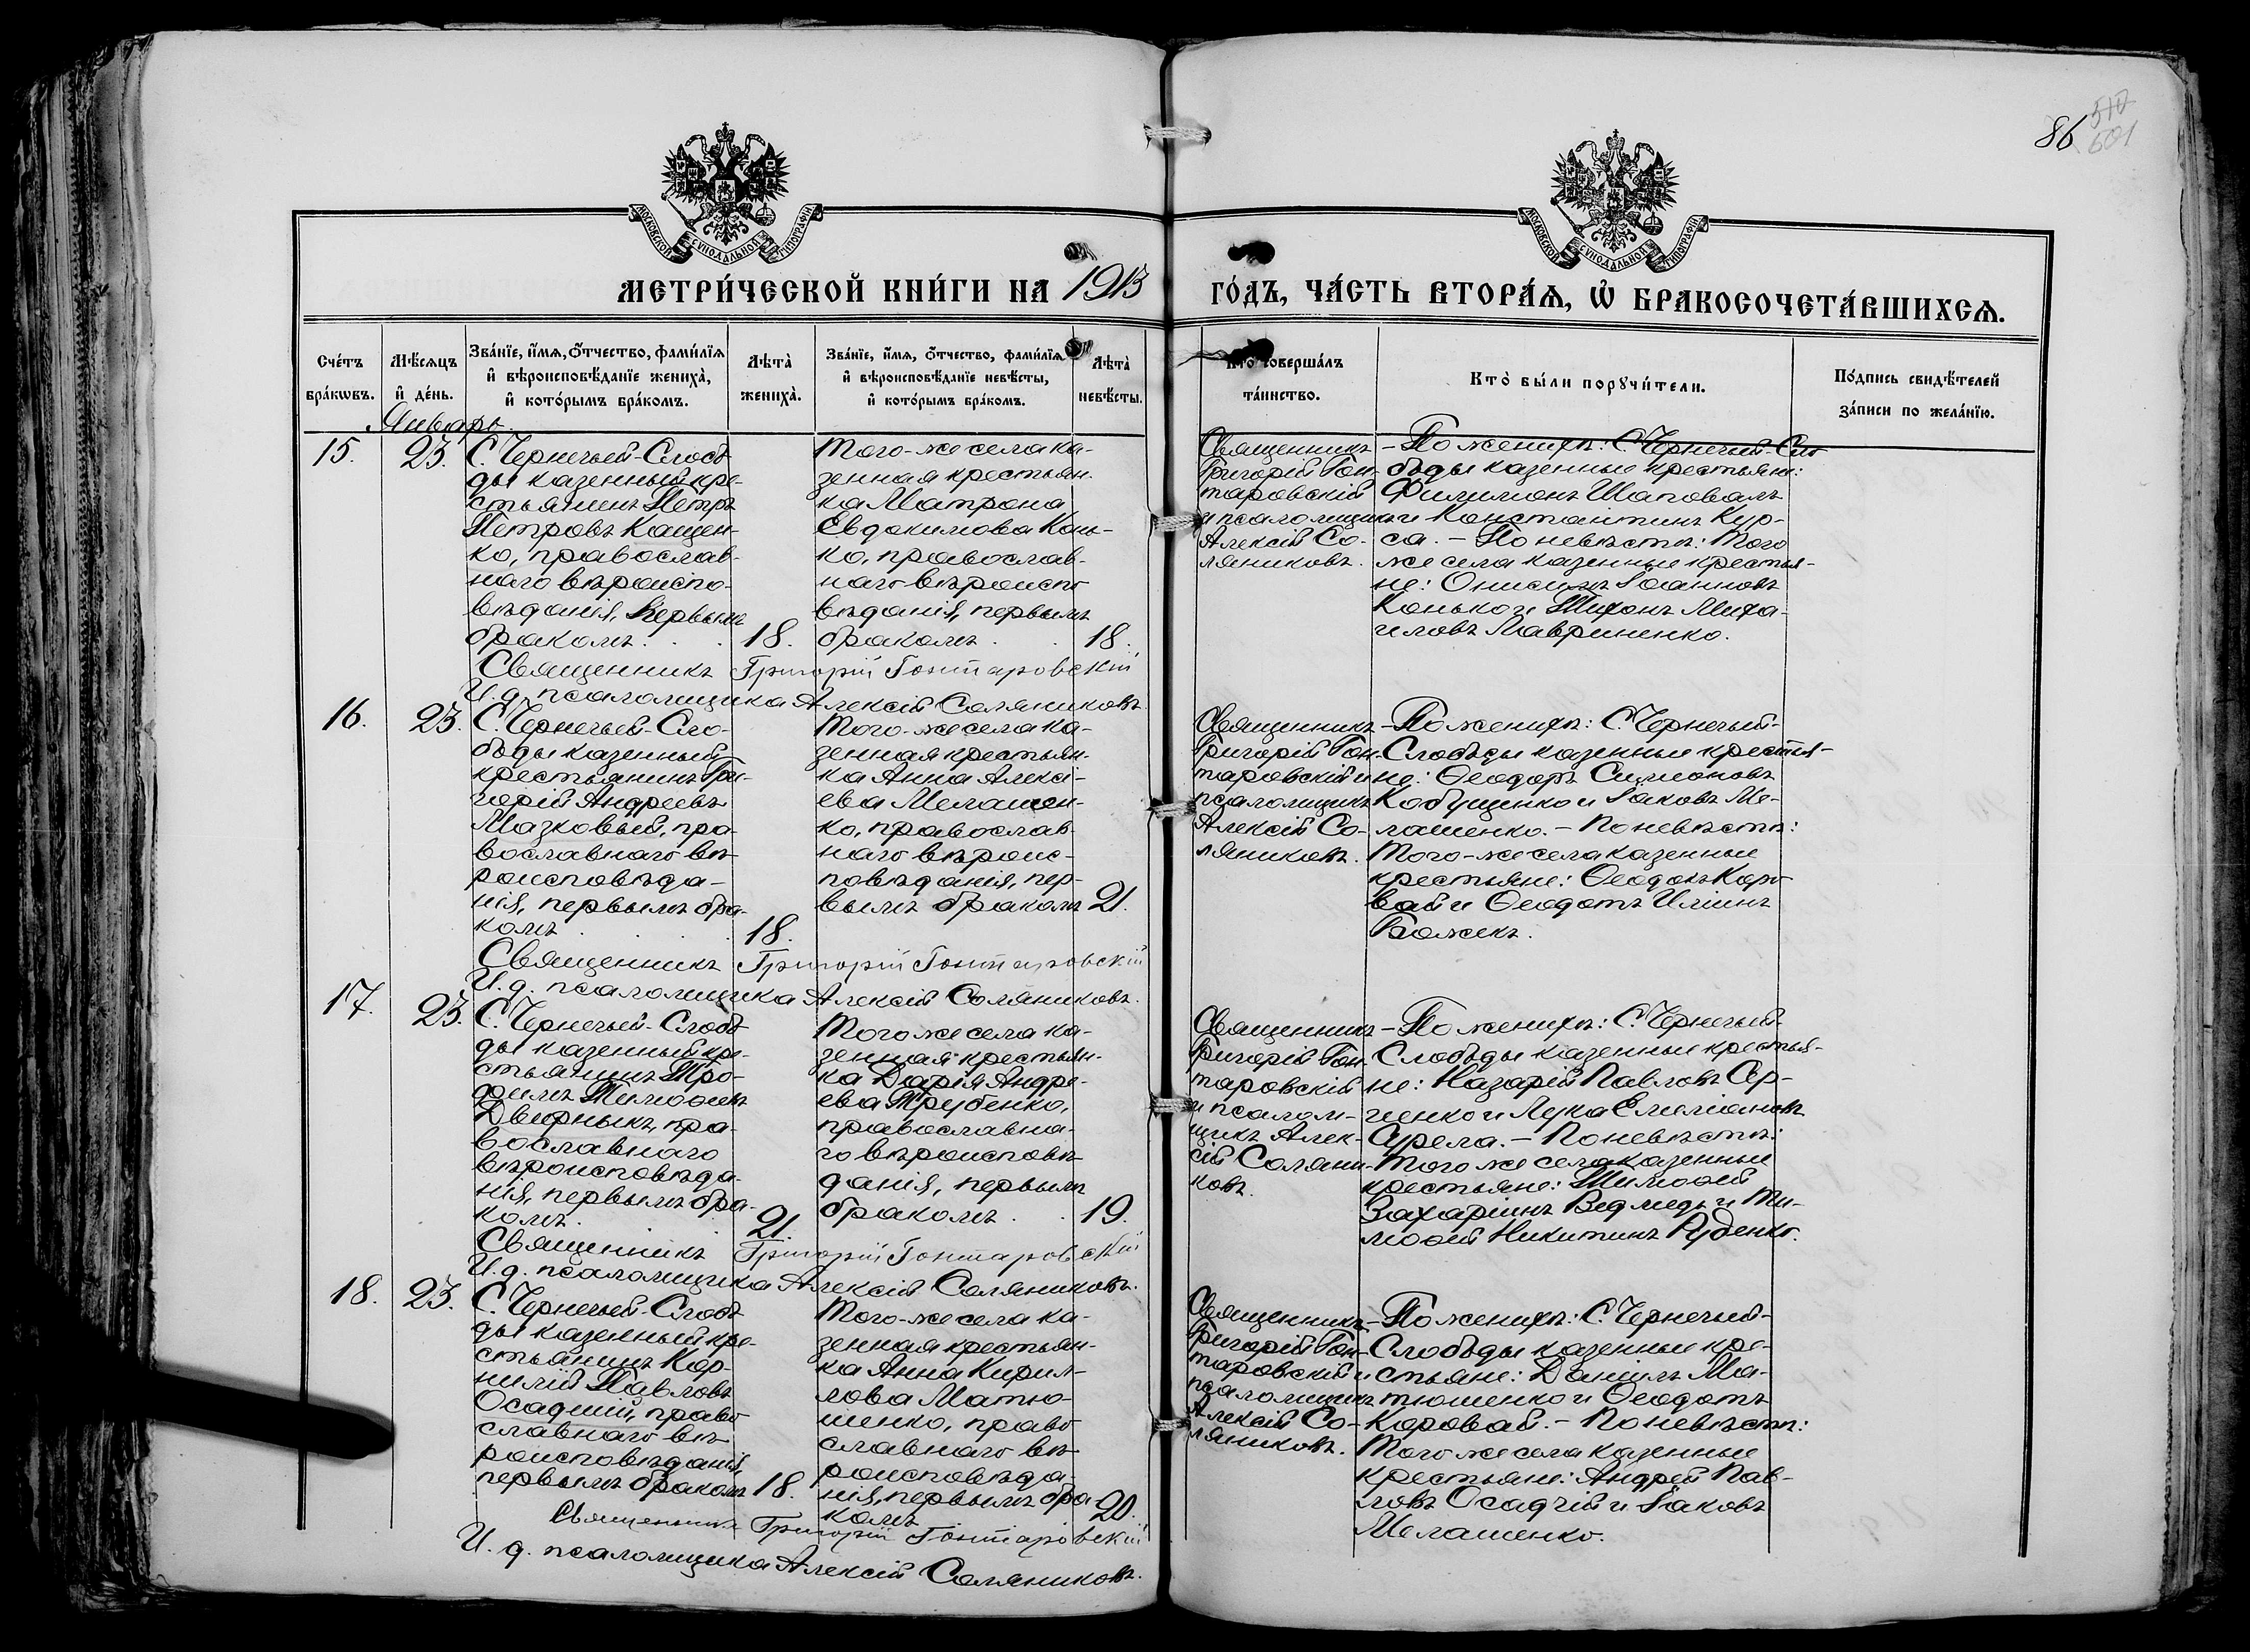 86
510
601
МОСКОВСКОЙ СѴНОДАЛЬНОЙ ТИПОГРАФІИ
МОСКОВСКОЙ СѴНОДАЛЬНОЙ ТИПОГРАФІИ
МЕТРИ́ЧЕСКОЙ КНИ́ГИ НА 1913 ГО́ДЪ, ЧА́СТЬ ВТОРА́Ѧ, Ѡ҆ БРАКОСОЧЕТА́ВШИХСѦ.
Сче́тъ
бра́кѡвъ.
Мѣ́сѧцъ
и҆ де́нь.
Зва́нїе, и҆́мѧ, ѻ҆́тчество, фами́лїѧ
и҆ вѣроисповѣ́данїе жениха̀,
и҆ кото́рымъ бра́комъ.
Лѣта̀
жениха̀.
Зва́нїе, и҆́мѧ, ѻ҆́тчество, фами́лїѧ
и҆ вѣроисповѣ́данїе невѣ́сты,
и҆ кото́рымъ бра́комъ.
Лѣта̀
невѣ́сты.
Кто̀ соверша́лъ
та́инство.
Кто̀ бы́ли порꙋчи́тели.
По́дпись свидѣ́телей
за́писи по жела́нїю.
Январь.
15.
23.
С. Чернечьей-Слобо-
ды казенный кре-
стьянинъ Петръ
Петровъ Кащен-
ко, православ-
наго вѣроиспо-
вѣданія, первымъ
бракомъ.
18.
Того-же села ка-
зенная крестьян-
ка Матрона
Евдокимова Конь-
ко, православ-
наго вѣроиспо
вѣданія, первымъ
бракомъ.
18.
Священникъ
Григорій Гон-
таровскій
и псаломщикъ
Алексій Со-
ляниковъ.
- По женихѣ: С. Чернечьей-Сло
боды казенные крестьяне:
Филимонъ Шаповалъ
и Константинъ Кур-
са. - По невѣстѣ: Того
же села казенные крестья-
не: Онисимъ Іоанновъ
Конько и Тихонъ Миха-
иловъ Лавриненко.
Священникъ Григорій Гонтаровскій
И. д. псаломщика Алексій Соляниковъ.
16.
23.
С. Чернечьей-Сло-
боды казенный
крестьянинъ Гри-
горій Андреевъ
Мазковый, пра-
вославнаго вѣ-
роисповѣда-
нія, первымъ бра-
комъ
18.
Того-же села ка-
зенная крестьян-
ка Анна Алексі-
ева Мелашен-
ко, православ-
наго вѣроис-
повѣданія, пер-
вымъ бракомъ
21.
Священникъ
Григорій Гон-
таровскій и
псаломщикъ
Алексій Со-
ляниковъ.
- По женихѣ: С. Чернечьей-
Слободы казенные крестья-
не: Ѳеодоръ Симоновъ
Кобущенко и Іаковъ Ме-
лашенко. - По невѣстѣ:
Того-же села казенные
крестьяне: Ѳеодотъ Коро
вай и Ѳеодотъ Илiинъ
Божекъ.
Священникъ Григорій Гонтаровскій
И. д. псаломщика Алексій Соляниковъ.
17.
23.
С. Чернечьей-Слобо
ды казенный кре-
стьянинъ Тро-
фимъ Тимоѳеевъ
Дворныкъ, пра-
вославнаго
вѣроисповѣда-
нія, первымъ бра-
комъ.
21.
Того же села ка-
зенная крестьян-
ка Дарія Андре-
ева Трубенко,
православна-
го вѣроисповѣ
данія, первымъ
бракомъ.
19.
Священникъ
Григорій Гон-
таровскій
и псалом-
щикъ Алек-
сій Соляни-
ковъ.
- По женихѣ: С. Чернечьей-
Слободы казенные крестья-
не: Назарій Павловъ Сер-
гіенко и Лука Емеліановъ
Сурела. - По невѣстѣ:
Того же села казенные
крестьяне: Тимоѳей
Захаріинъ Ведмедь и Ти-
моѳей Никитинъ Руденко.
Священникъ Григорій Гонтаровскій
И. д. псаломщика Алексій Соляниковъ.
18.
23.
С. Чернечьей-Слобо
ды казенный кре-
стьянинъ Кор-
нилій Павловъ
Осадчій, право
славнаго вѣ-
роисповѣданія,
первымъ бракомъ
18.
Того-же села ка-
зенная крестьян-
ка Анна Кирил-
лова Матю-
шенко, право
славнаго вѣ-
роисповѣда-
нія, первымъ бра-
комъ
20.
Священникъ
Григорій Гон-
таровскій и
псаломщикъ
Алексій Со-
ляниковъ.
- По женихѣ: С. Чернечьей-
Слободы казенные кре-
стьяне: Даніилъ Ма-
тюшенко и Ѳеодотъ
Коровай. - По невѣстѣ:
Того же села казенные
крестьяне: Андрей Пав-
ловъ Осадчій и Іаковъ
Мелашенко.
Священникъ Григорій Гонтаровскій
И. д. псаломщика Алексій Соляниковъ.